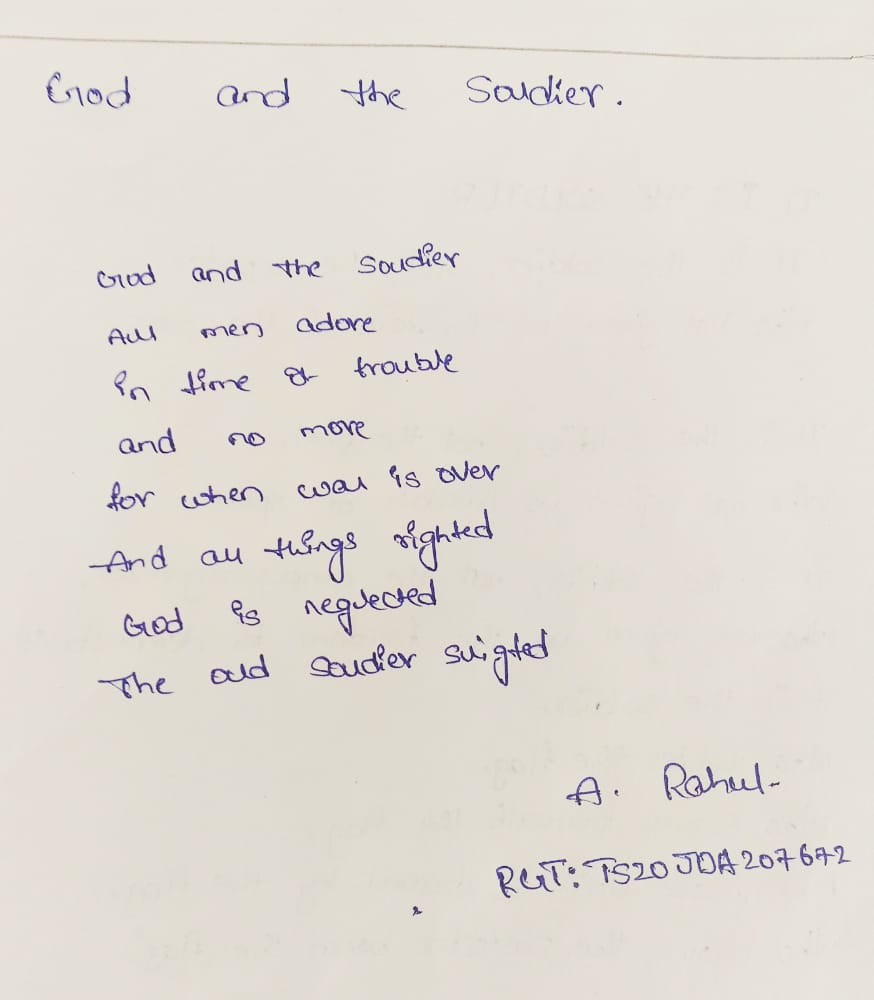 God and the Soldier.
God and the Soldier
All men adore
in time of trouble
and no more
for when war is over
And all things righted
God is neglected
The old Soldier sligted
A. Rahul
RGT: TS20JDA207672